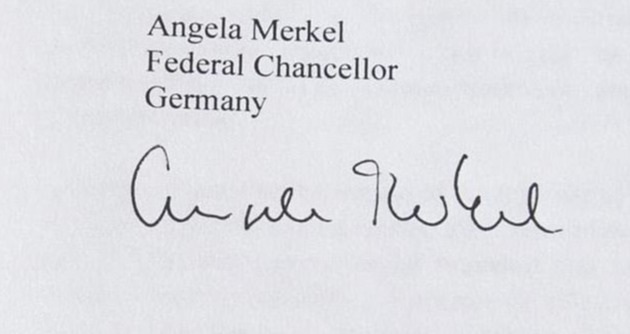 Angela Merkel
Federal Chancellor
Germany
Angela Merkel